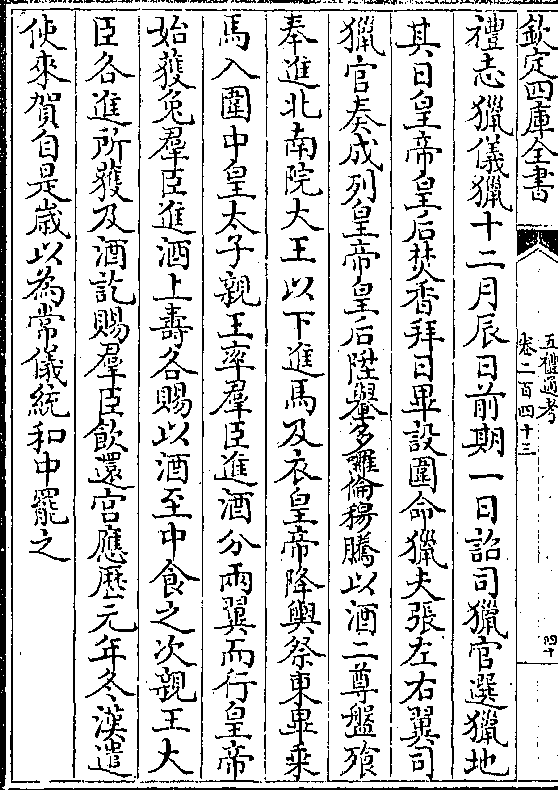 欽定四庫全書
五禮通考
卷二百四十三
四十
禮志獵儀獵十二月辰日前期一日詔司獵官選獵地
其日皇帝皇后焚香拜日畢設圍命獵夫張左右翼司
獵官奏成列皇帝皇后陞轝多囉倫穆騰以酒二尊盤飱
奉進北南院大王以下進馬及衣皇帝降輿祭東畢乗
馬入圍中皇太子親王率羣臣進酒分兩翼而行皇帝
始獲兔羣臣進酒上壽各賜以酒至中食之次親王大
臣各進所獲及酒訖賜羣臣飲還宫應歴元年冬漢遣
使來賀自是歲以為常儀統和中罷之